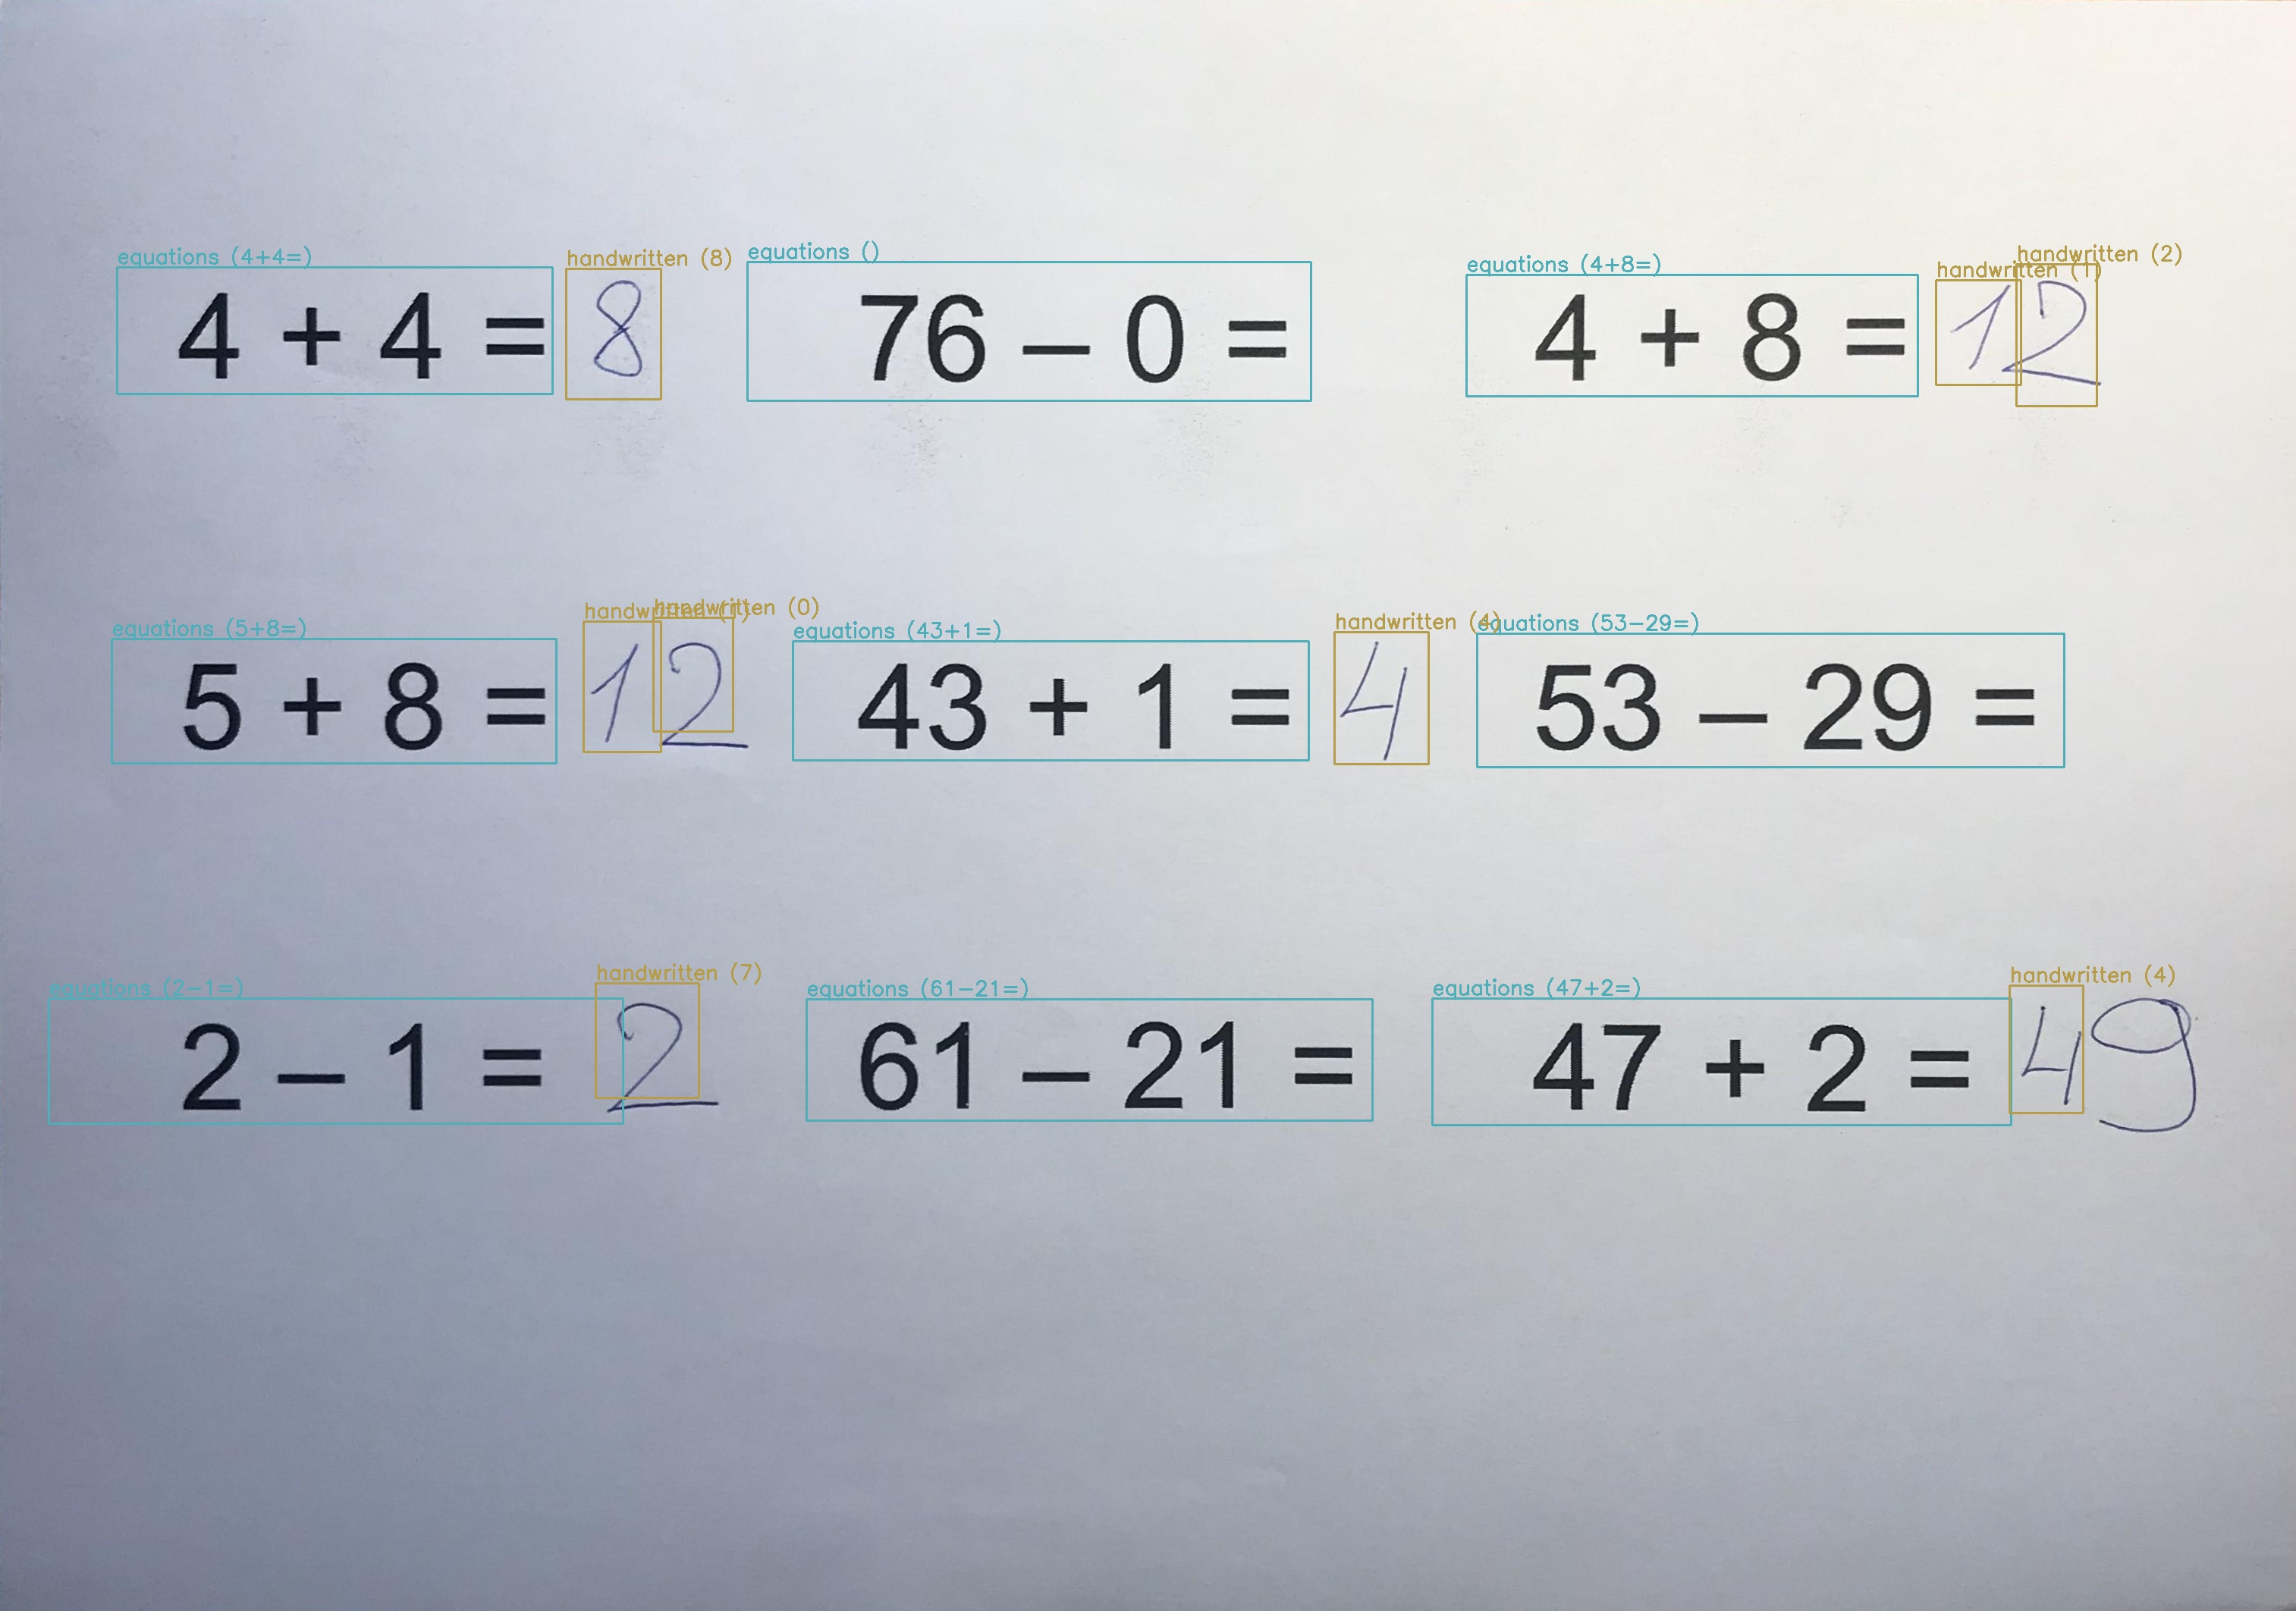 equations (4+4=) handwritten (8) equations () equations (4+8=) handwritten (1) handwritten (2)
4 + 4 = 8 76 – 0 = 4 + 8 = 12
equations (5+8=) handwritten (1) handwritten (0) equations (43+1=) handwritten (4) equations (53-29=)
5 + 8 = 12 43 + 1 = 4 53 – 29 =
equations (2-1=) handwritten (7) equations (61-21=) equations (47+2=) handwritten (4)
2 – 1 = 2 61 – 21 = 47 + 2 = 49